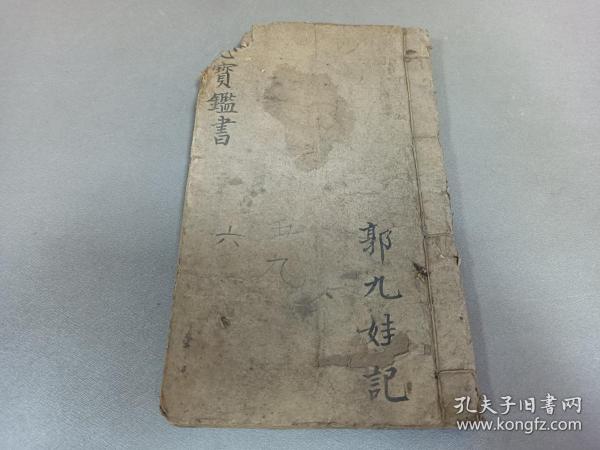 寳鑑書
六
五九
郭九娃記
孔夫子旧書网
www.kongfz.com